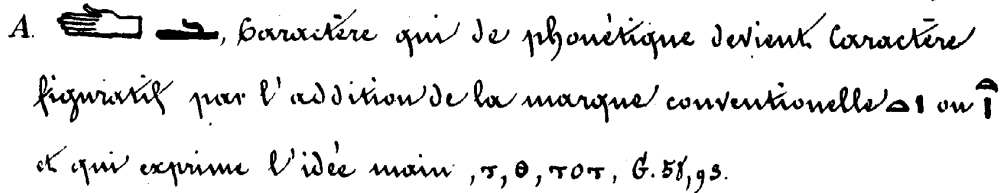 A. 𓂧 𓂩, Caractère qui de phonétique devient Caractère
figuratif par l'addition de la marque conventionelle 𓏏𓏤 ou 𓏏𓏤
et qui exprime l'idée main, ⲧ, ⲑ, ⲧⲟⲧ, G. 58, 93.